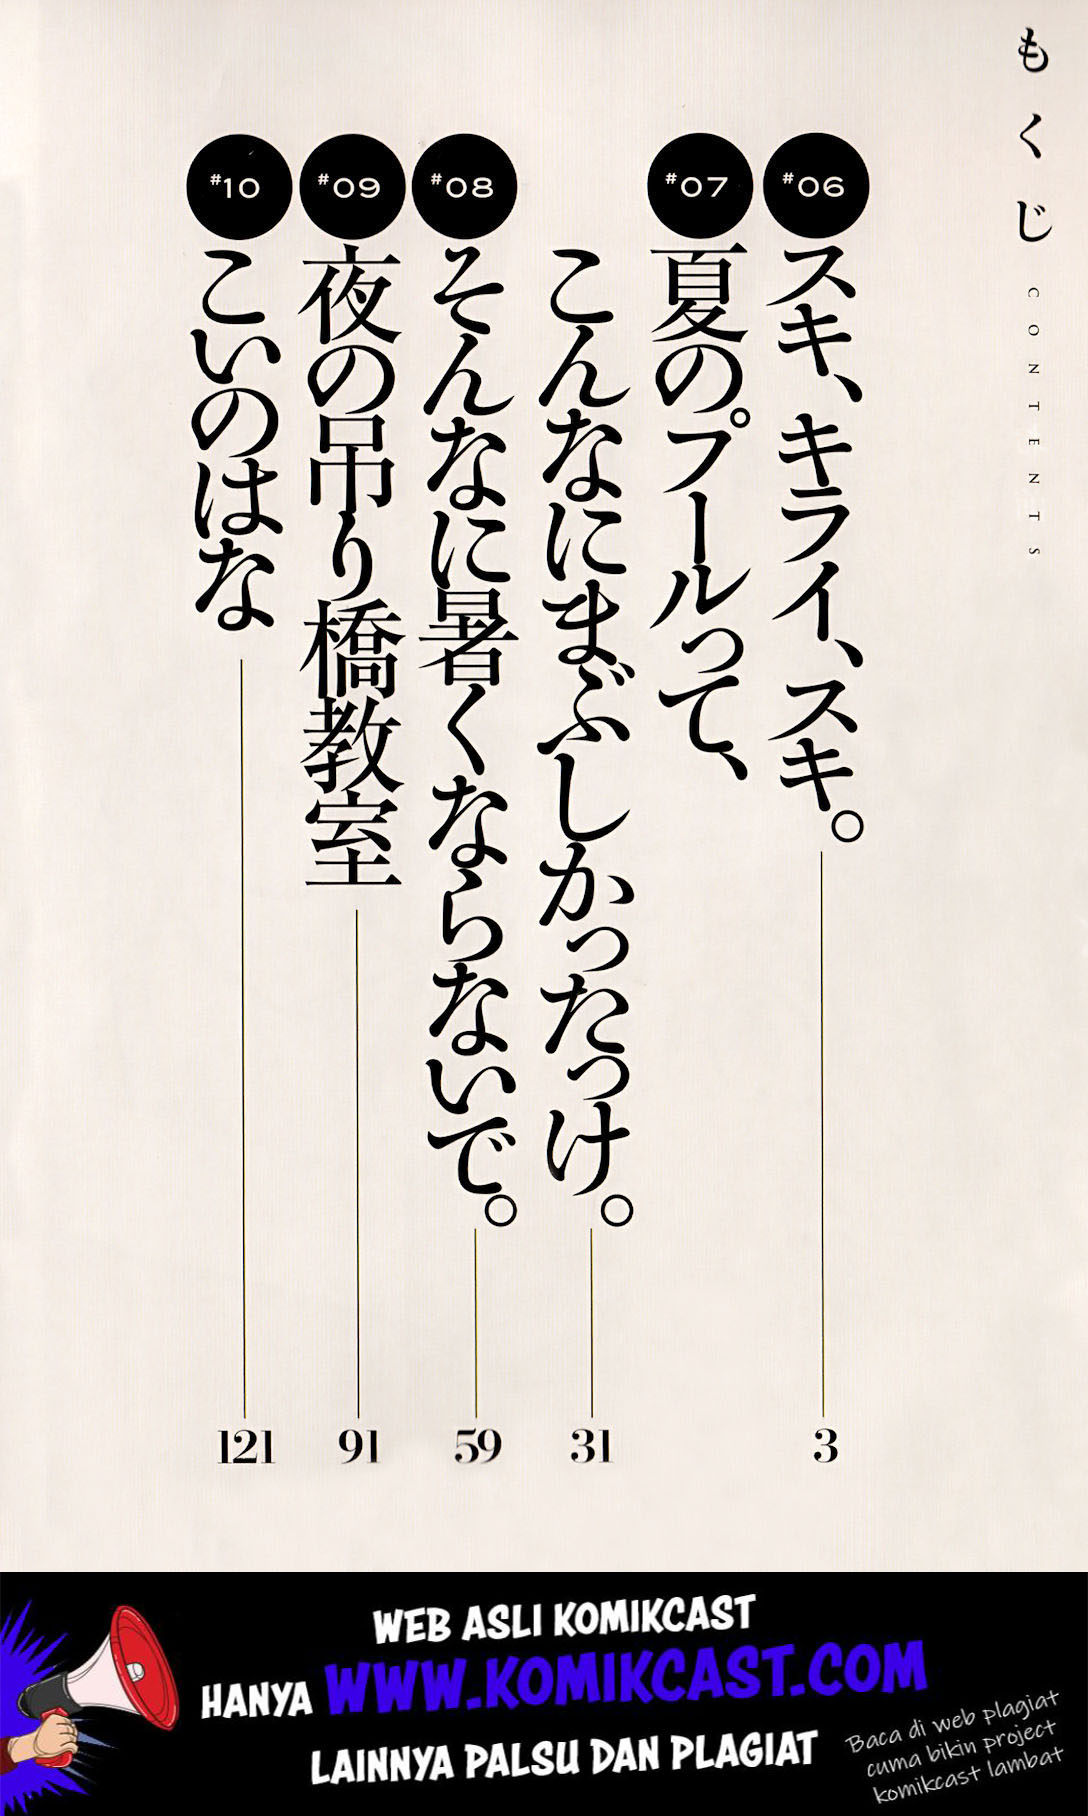 もくじ
CONTENTS
#06
スキ、キライ、スキ。
3
#07
夏のプールって、
こんなにまぶしかったっけ。
31
#08
そんなに暑くならないで。
59
#09
夜の吊り橋教室
91
#10
こいのはな
121
WEB ASLI KOMIKCAST
HANYA WWW.KOMIKCAST.COM
LAINNYA PALSU DAN PLAGIAT
Baca di web plagiat
cuma bikin project
komikcast lambat